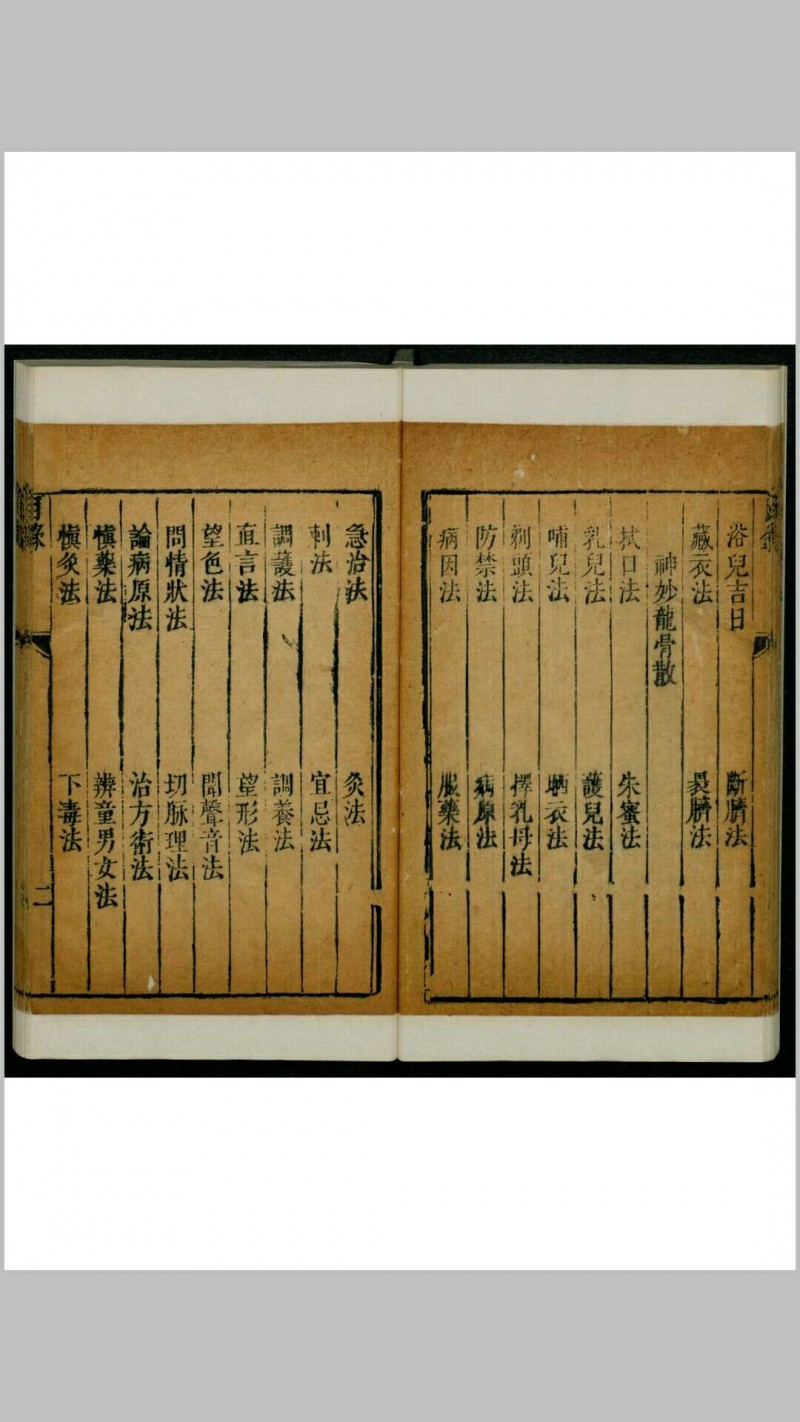 浴兒吉日 斷臍法
藏衣法 裹臍法
神妙龍骨散
拭口法 朱蜜法
乳兒法 護兒法
哺兒法 晒衣法
剃頭法 擇乳母法
防禁法 病原法
病因法 服藥法
急治法 灸法
刺法 宜忌法
調護法 調養法
直言法 望形法
望色法 聞聲音法
問情狀法 切脉理法
論病原法 治方術法
慎藥法 辨童男女法
慎灸法 下毒法
目錄 二